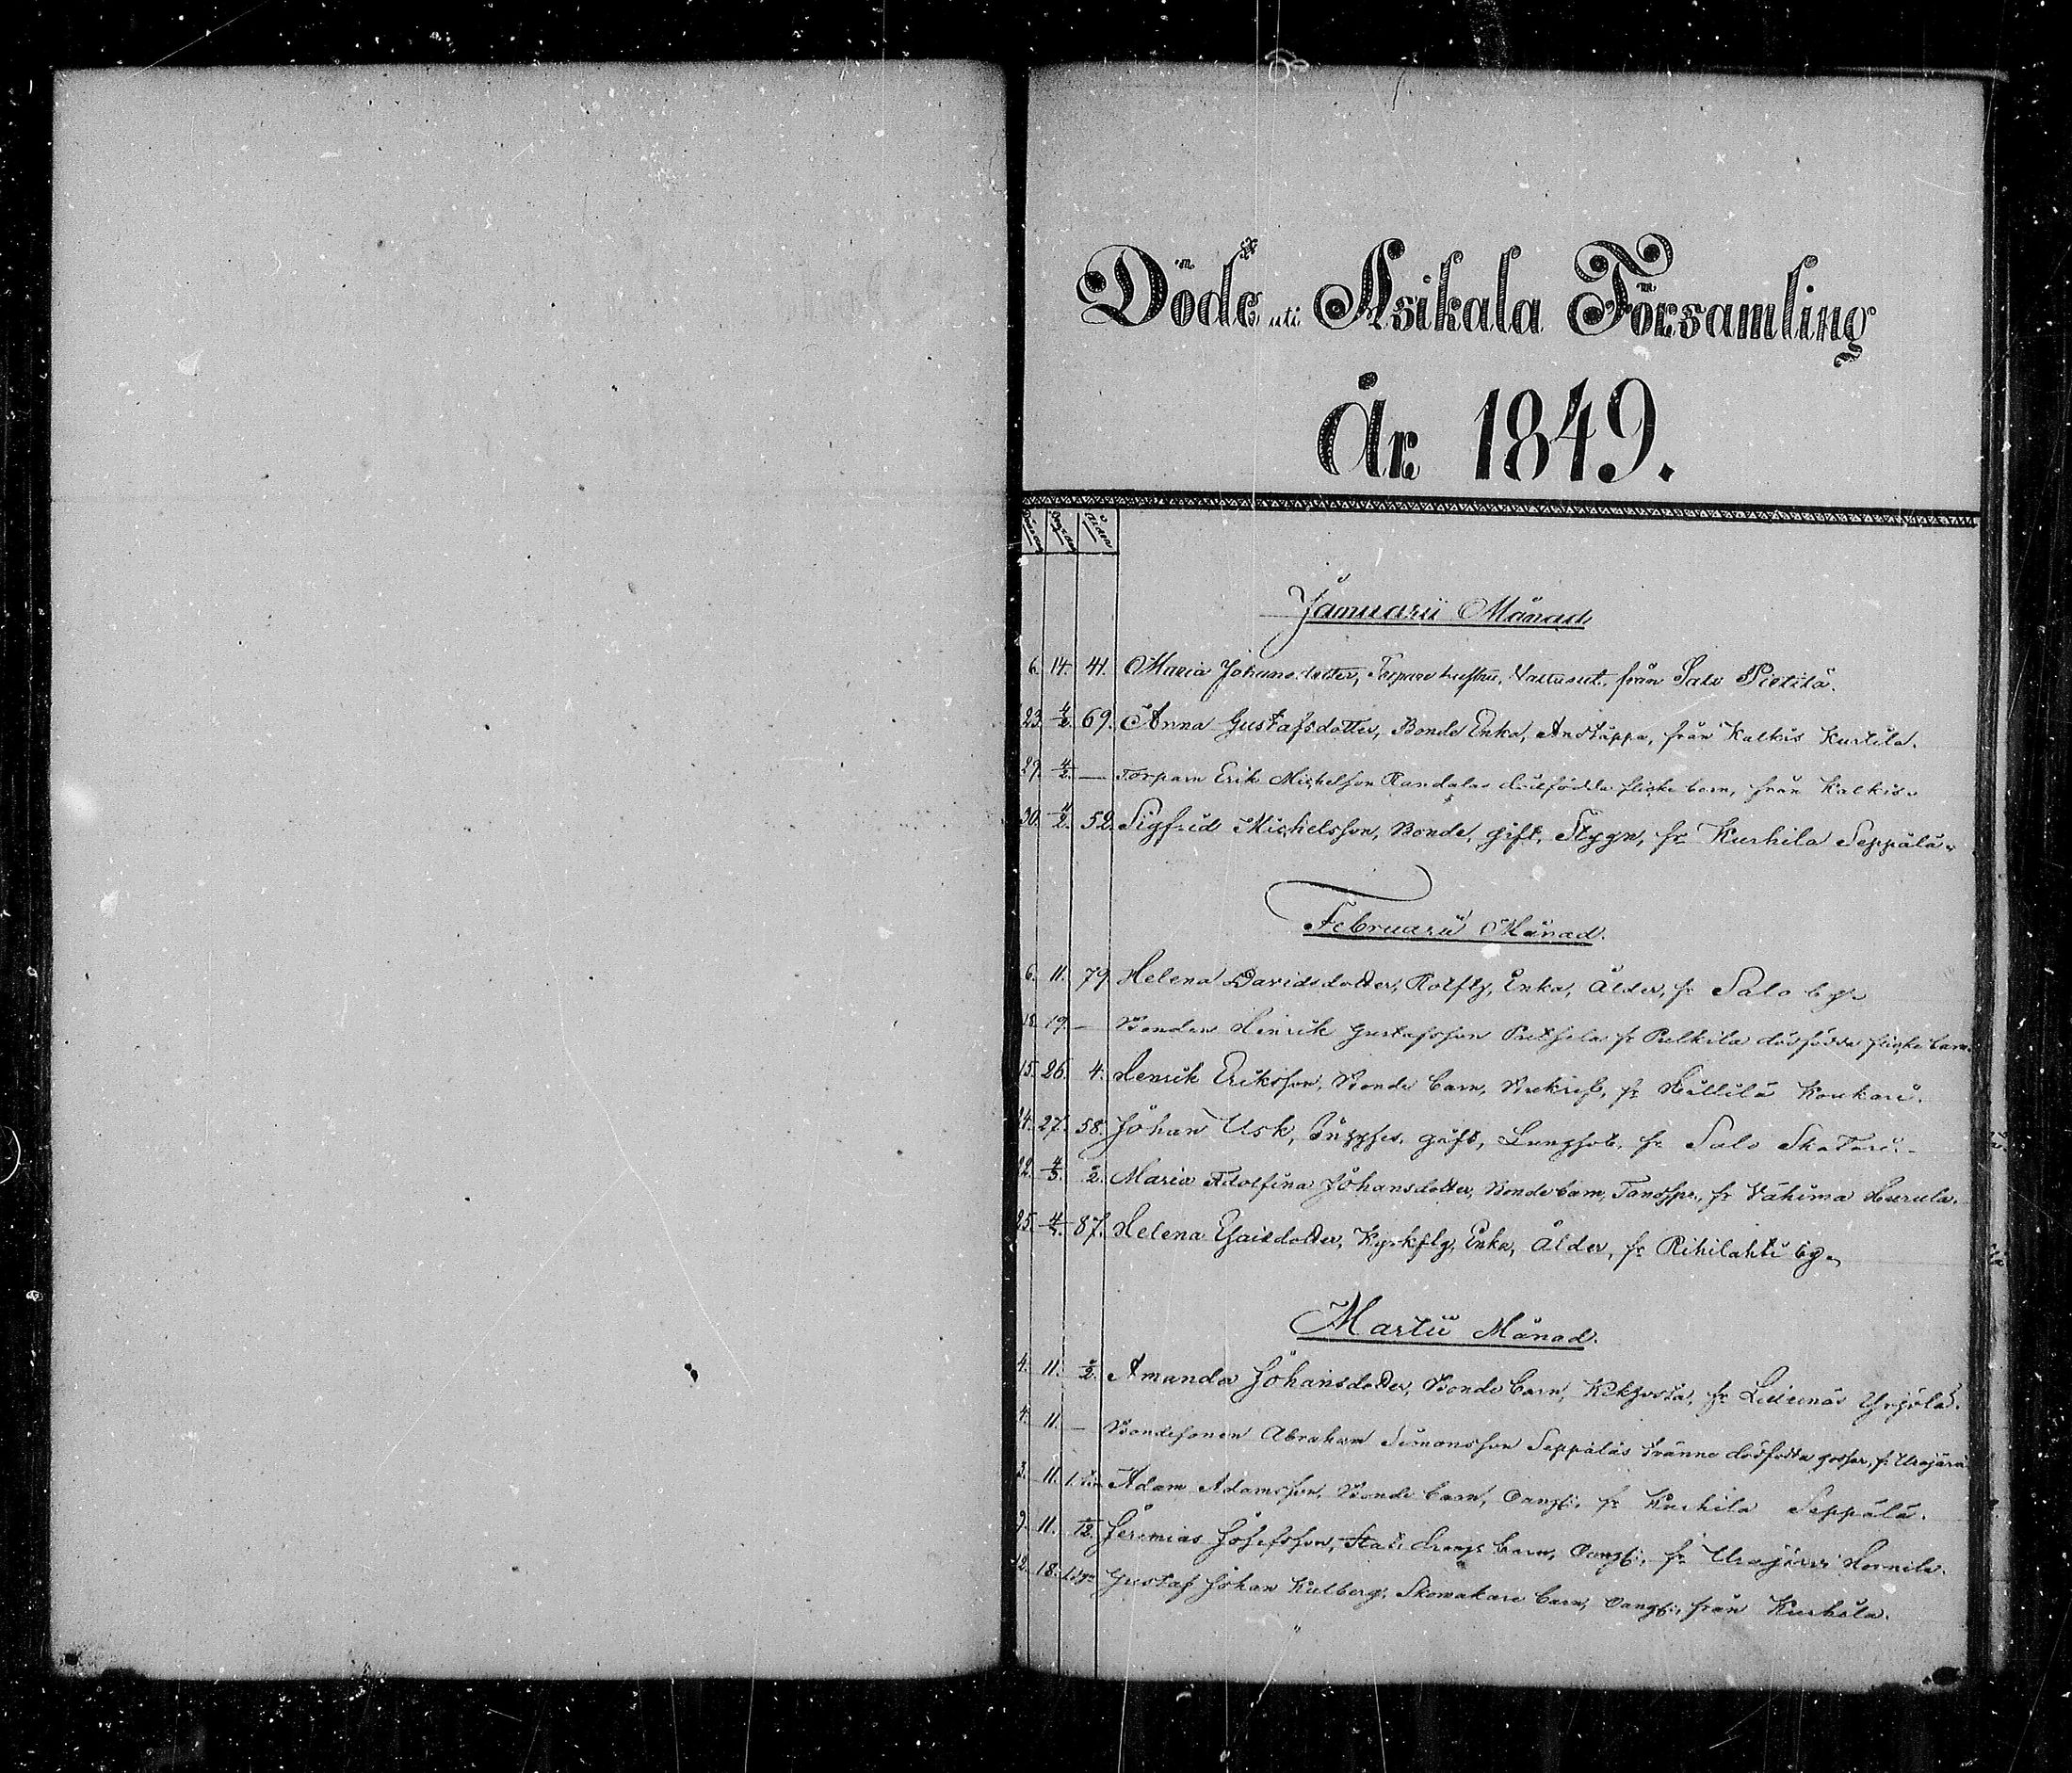 Döde uti Asikala Församling
År 1849.
Januarii Månad
6. 14. 41. Maria Johansdotter, Torpare hustru, Vattusot, från Salo Pietilä.
23. 4/2. 69. Anna Gustafsdotter, Bonde Enka, Andtäppa, från Kalkis Kurtila.
29. 4/2. — Torparn Erik Michelsson Randalas dödfödda flicke barn, från Kalkis.
30. 4/2. 52. Sigfrid Michelsson, Bonde, gift, Stygn, fr Kurhila Seppälä.
Februarii Månad.
6. 11. 79. Helena Davidsdotter, Rotfhg, Enka, Ålder, fr Salo by.
18. 19. — Bonden Henrik Gustafsson fr Pulkila dödfödda flicke barn.
15. 26. 4. Henrik Eriksson, Bonde barn, fr Hillilä Koukari.
24. 27. 58. Johan Usk, gift, Lungsot, fr Salo Skatari.
22. 4/3. 2. Maria Adolfina Johansdotter, Bonde barn, fr Vähima Hurula.
25. 4/. 87. Helena Esaisdotter, Kyrkfhg, Enka, Ålder, fr Rihilahti by.
Martii Månad.
4. 11. Amanda Johansdotter, Bonde barn, Kikhosta, fr Yrjölä.
4. 11. — Bondesonen Abraham Simonsson Seppäläs tvänne dödfödda gossar, fr Urajärvi
3. 11. Adam Adamsson, Bonde barn, Oangf: fr Kurhila Seppälä.
9. 11. Jeremias Josefsson, Stat drengs barn, Oangf: fr Urajärvi
12. 18. Gustaf Johan Kulberg, Skomakare barn, Oangf: från Kurhila.